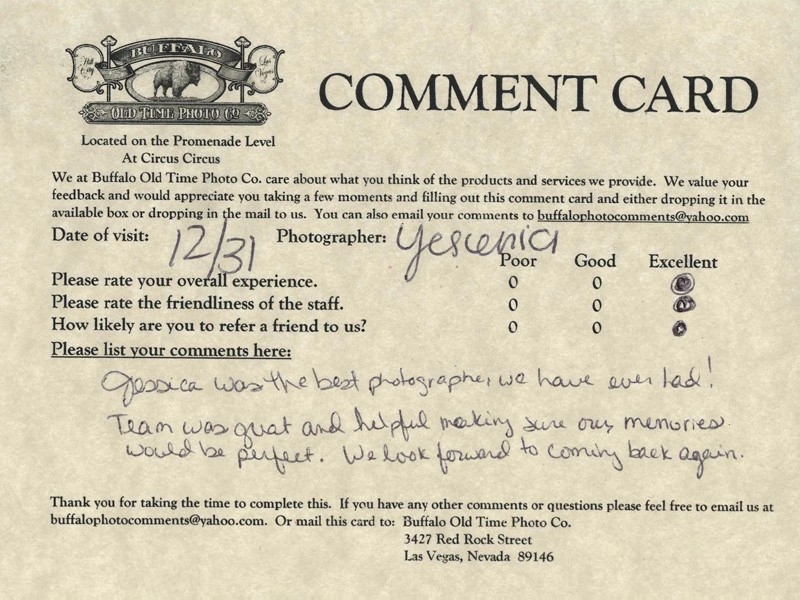 BUFFALO
Hill City
Las Vegas
OLD TIME PHOTO CO
COMMENT CARD
Located on the Promenade Level
At Circus Circus
We at Buffalo Old Time Photo Co. care about what you think of the products and services we provide. We value your
feedback and would appreciate you taking a few moments and filling out this comment card and either dropping it in the
available box or dropping in the mail to us. You can also email your comments to buffalophotocomments@yahoo.com
Date of visit: 12/31 Photographer: Yescenia
Poor Good Excellent
Please rate your overall experience. 0 0
Please rate the friendliness of the staff. 0 0
How likely are you to refer a friend to us? 0 0
Please list your comments here:
Jessica was the best photographer we have ever had!
Team was great and helpful making sure our memories
would be perfect. We look forward to coming back again.
Thank you for taking the time to complete this. If you have any other comments or questions please feel free to email us at
buffalophotocomments@yahoo.com. Or mail this card to: Buffalo Old Time Photo Co.
3427 Red Rock Street
Las Vegas, Nevada 89146